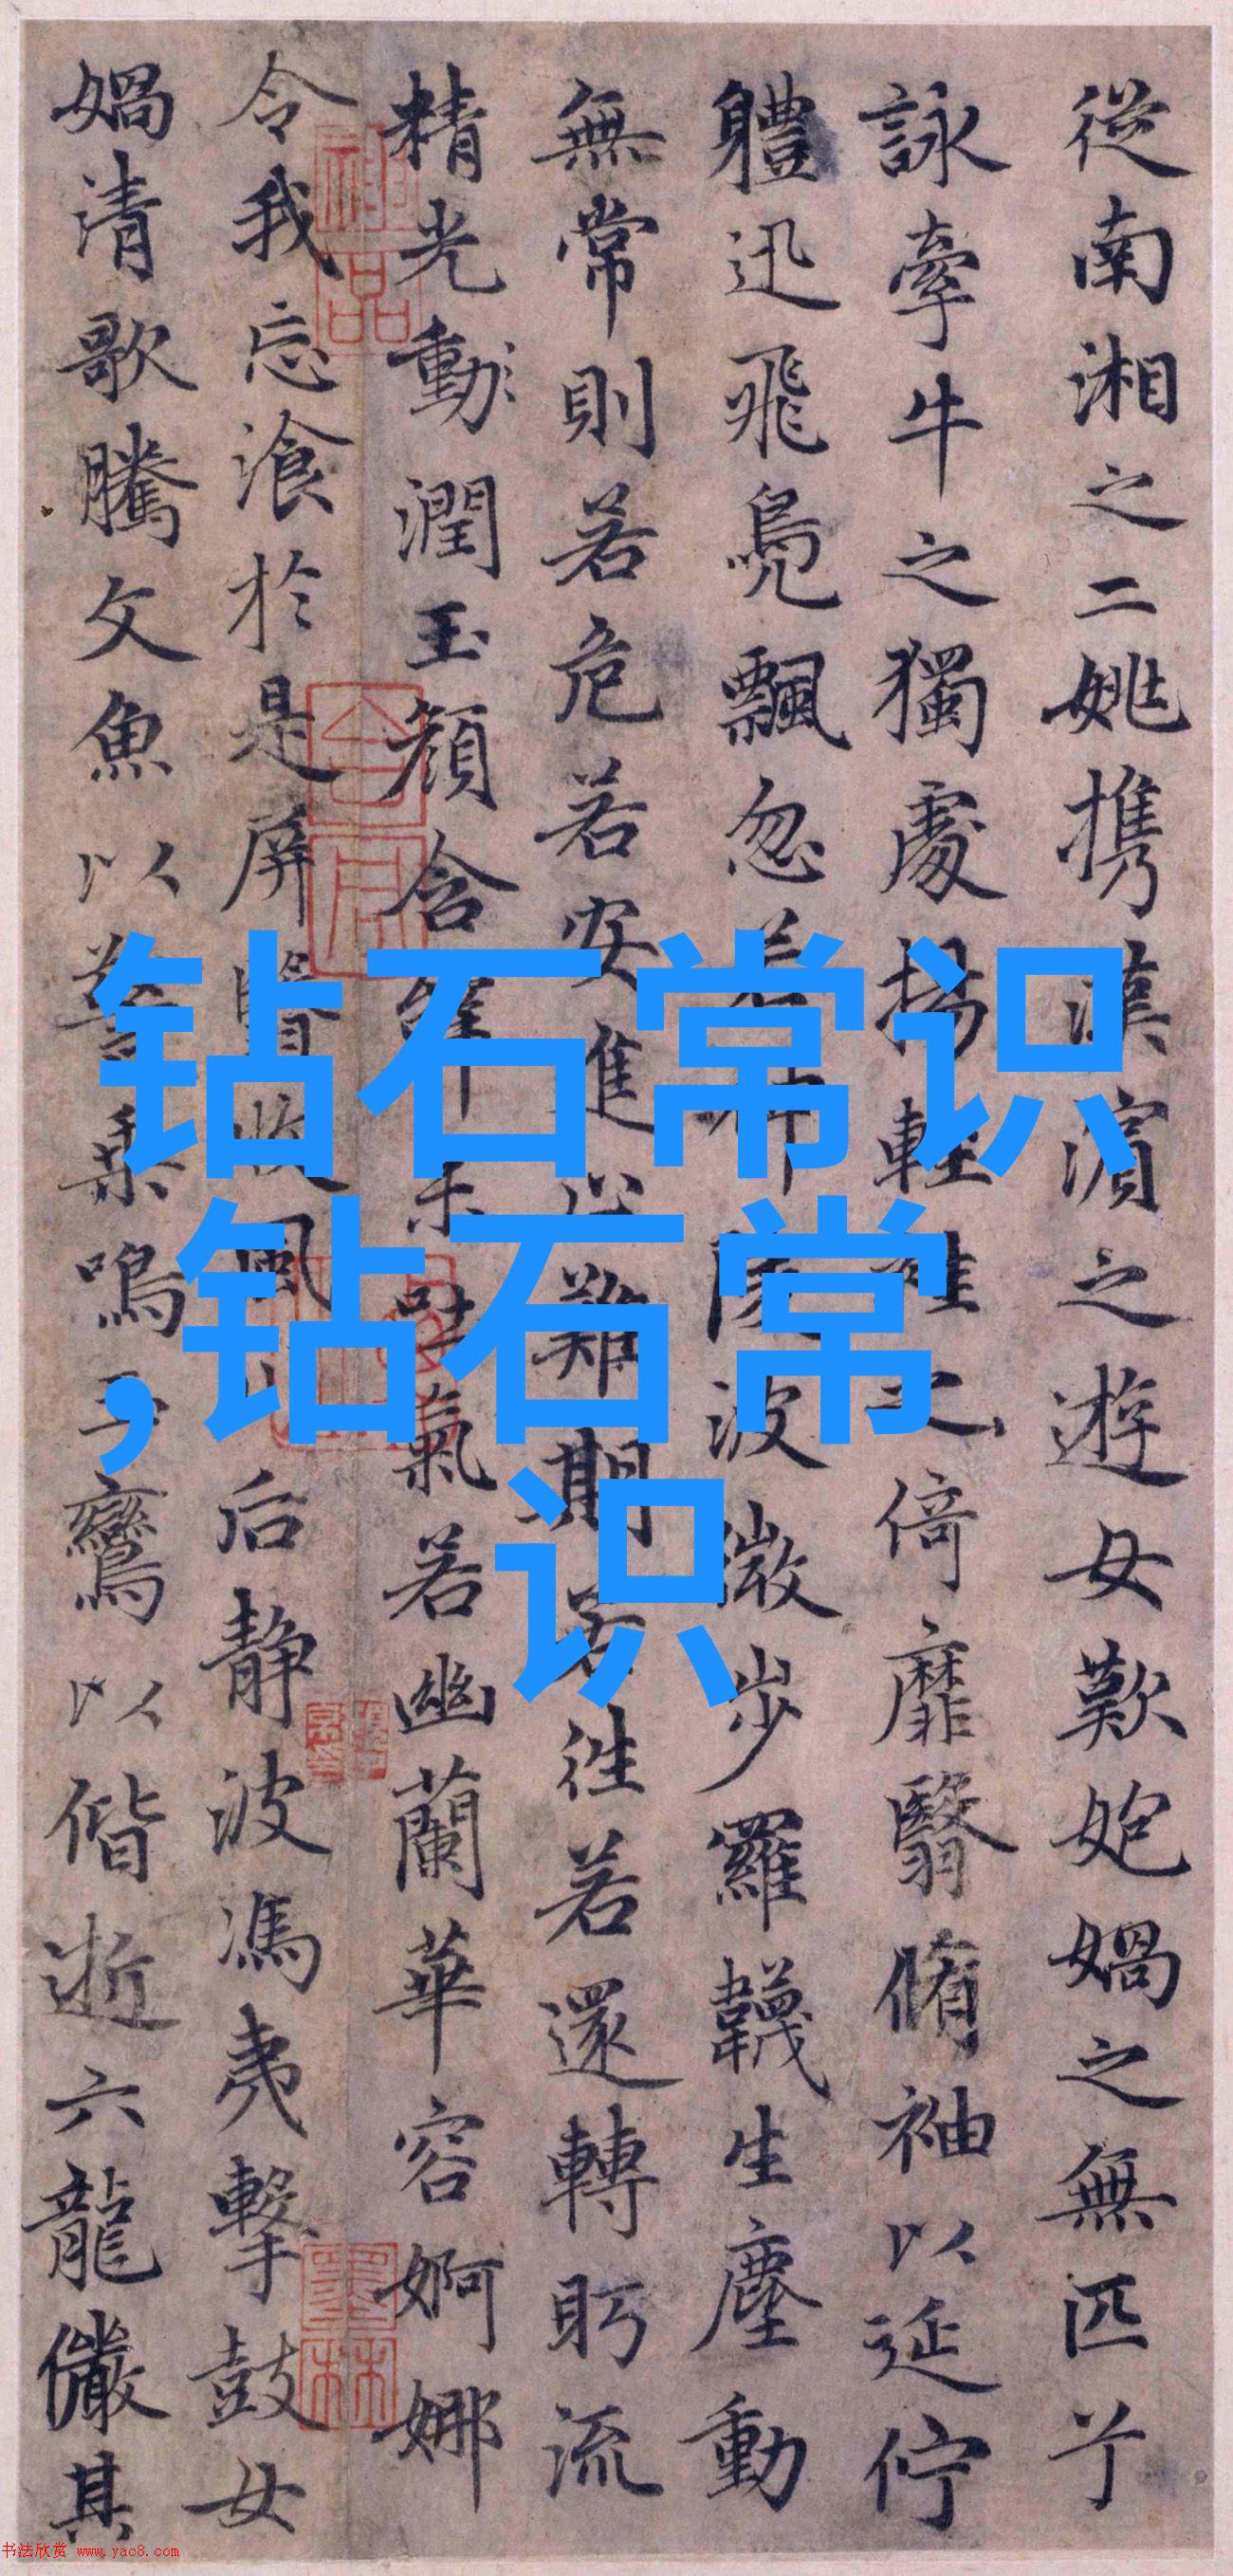 從南湘之二姚携漢濱之遊女歎媧之無匹兮
詠牽牛之獨處揚輕袿之倚靡翳脩袖以延佇
軆迅飛鳧飄忽若神陵波微步羅韈生塵動
無常則若危若安進止難期若往若還轉眄流
精光動潤玉顏含辭未吐氣若幽蘭華容婀娜
令我忘飡於是屏翳收風川后静波馮夷擊鼓女
媧清歌騰文魚以警乘鳴玉鸞以偕逝六龍儼其
钻石常识
,钻石常
识
神品
书法欣赏 www.yac8.com